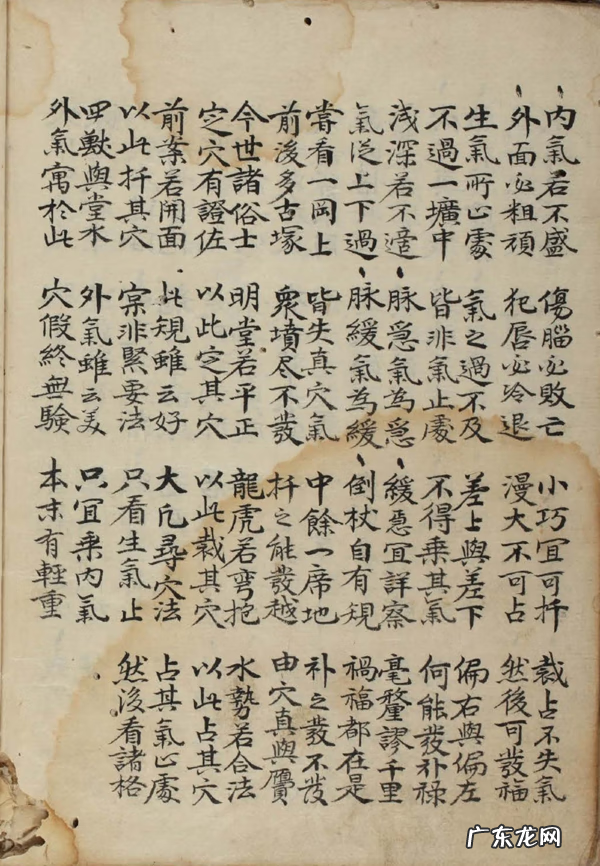 內氣若不盛 傷腦必敗亡 小巧冝可扦 裁占不失氣
外面必粗頑 犯唇必冷退 漫大不可占 然後可發福
生氣所止處 氣之過不及 差上與差下 偏右與偏左
不過一壙中 皆非氣止處 不得乗其氣 何能發补禄
浅深若不適 脉急氣為急 緩急冝詳察 毫釐謬千里
氣從上下過 脉緩氣為緩 倒杖自有規 禍福都在是
嘗看一岡上 皆失真穴氣 中餘一席地 补之發不發
前後多古塚 衆墳尽不發 扦之能發越 由穴真與贗
今世諸俗士 明堂若平正 龍虎若弯抱 水勢若合法
定穴有證佐 以此定其穴 以此裁其穴 以此占其穴
前案若開面 此規雖云好 大凡尋穴法 占其氣止處
以此扦其穴 宲非緊要法 只看生氣止 然後看諸格
四獸與堂水 外氣雖云美 只冝乗內氣
外氣寓於此 穴假終無驗 本末有輕重
广东龙网